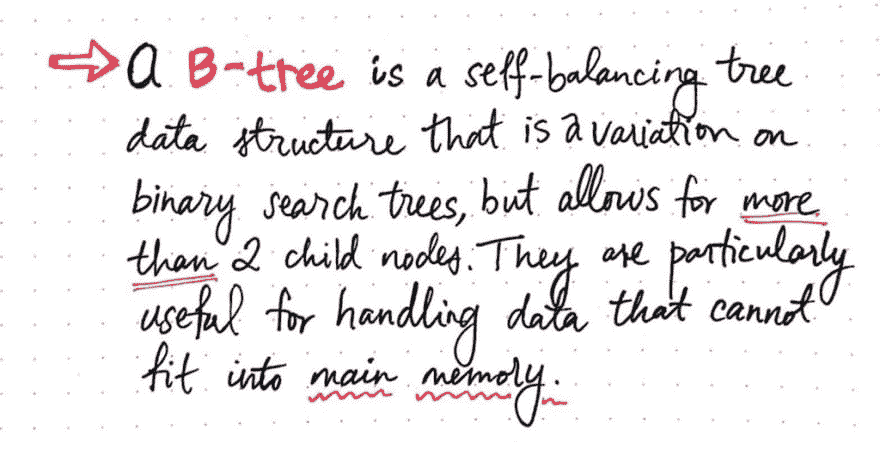 ⇒ A B-tree is a self-balancing tree
data structure that is a variation on
binary search trees, but allows for more
than 2 child nodes. They are particularly
useful for handling data that cannot
fit into main memory.